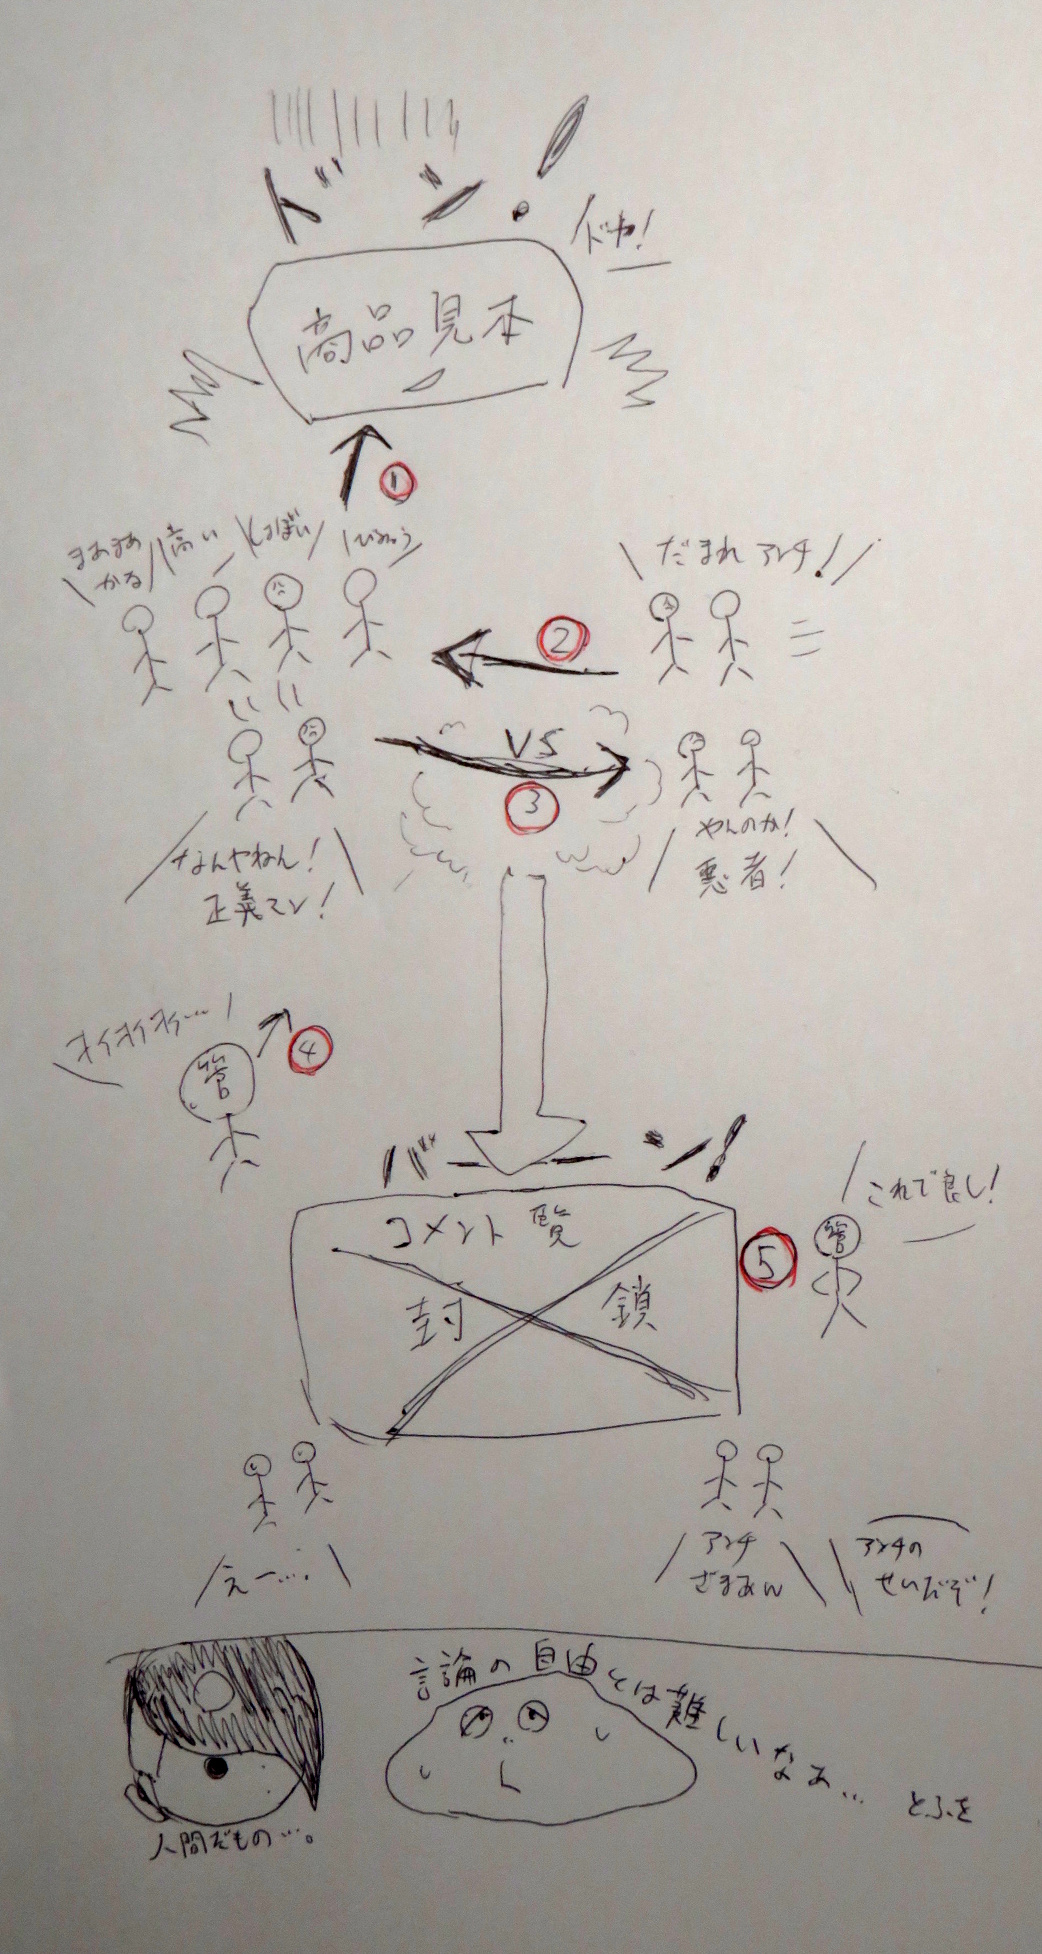 ドン!
ドヤ!
商品見本
①
まあまあ
かな
高い
しょぼい
びみょう
だまれアンチ!
②
VS
③
なんやねん!
正義マン!
やんのか!
悪者!
オイオイオイ…
管
④
バーン!
コメント覧
封鎖
⑤
これで良し!
管
えー…。
アンチ
ざまあん
アンチの
せいだぞ!
言論の自由とは難しいなぁ…
とふを
人間だもの…。